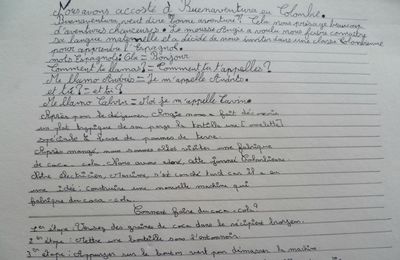 Nous avons accosté à Buenaventura en Colombie.
Buenaventura veut dire bonne aventure ! Cela nous présage beaucoup
d'aventures chanceuses. Le mousse Angie a voulu nous faire connaître
sa langue maternelle et a décidé de nous inviter dans une classe Colombienne
pour apprendre l'Espagnol.
mots Espagnols: Ola = Bonjour
Comment tu llamas? = Comment tu t'appelles?
Me llamo Andrès = Je m'appelle Andrès.
et tù? = et toi?
Me llamo Calvin = Moi je m'appelle Calvin.
Après pour le déjeuner, Angie nous a fait découvrir
un plat typique de son pays la tortilla une (omelette)
spéciale à base de pommes de terre.
Après manger nous sommes allés visiter une fabrique
de coca-cola. Nous avons adoré cette journée Colombienne
Notre électricien, s'est couché tard car il a eu
une idée : construire une nouvelle machine qui
fabrique du coca-cola.
Comment faire du coca-cola?
1ère étape: Versez des graines de coca dans le récipient
2ème étape: Mettre une bouteille sous l'entonnoir.
3ème étape: Appuyer sur le bouton vert pour démarrer la machine